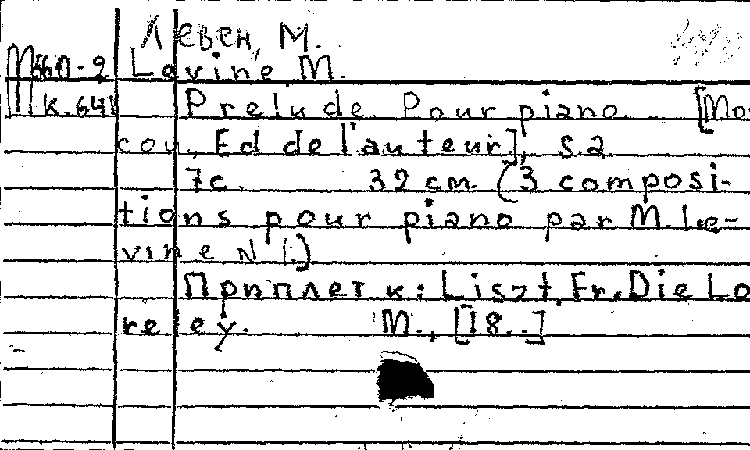 Левен, М.
Levine M.
К.641
Prelude. Pour piano... [Mos
cou, Ed de l'auteur], s.a
7с. 32 cm. (3 composi-
tions pour piano par M. Le-
vine N 1.)
Приплет к: Liszt, Fr. Die Lo
reley. М., [18..]